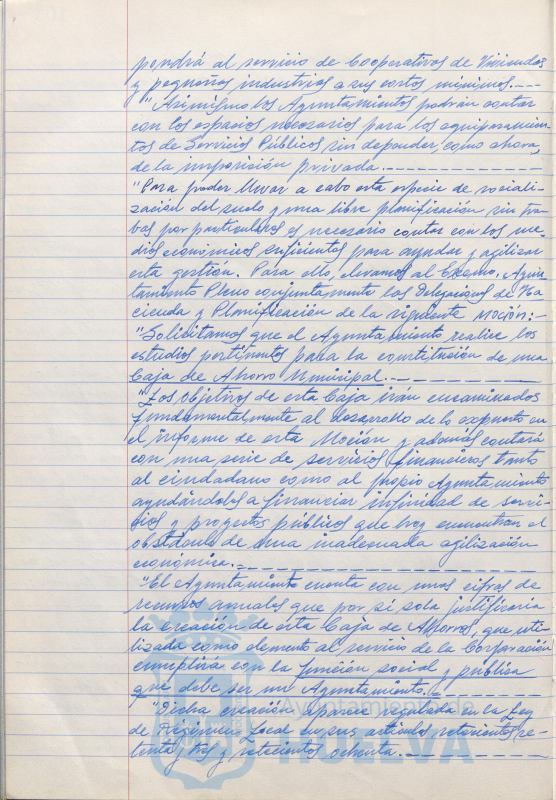 pondrá al servicio de Cooperativas de Viviendas
y pequeñas industrias a sus costos mínimos.---
"Asimismo los Ayuntamientos podrán contar
con los espacios necesarios para los equipamien
tos de Servicios Públicos sin depender, como ahora,
de la imposición privada.
"Para poder llevar a cabo esta especie de sociali-
zación del suelo y una libre planificación sin tra-
bas por particulares es necesario contar con los me-
dios económicos suficientes para ayudar y agilizar
esta gestión. Para ello, elevamos al Excmo. Ayun
tamiento Pleno conjuntamente las Delegaciones de Ha
cienda y Planificación de la siguiente Moción:-
"Solicitamos que el Ayuntamiento realice los
estudios pertinentes para la constitución de una
Caja de Ahorro Municipal.
"Los objetivos de esta Caja irán encaminados
fundamentalmente al desarrollo de lo expuesto en
el informe de esta Moción y además contará
con una serie de servicios financieros tanto
al ciudadano como al propio Ayuntamiento
ayudándoles a financiar infinidad de servi-
cios y proyectos públicos que hoy encuentran el
obstáculo de una inadecuada agilización
económica.
"El Ayuntamiento cuenta con unas cifras de
recursos anuales que por sí sola justificaría
la creación de esta Caja de Ahorros, que uti-
lizada como elemento al servicio de la Corporación
cumpliría con la función social y pública
que debe ser un Ayuntamiento.
"Dicha creación aparece regulada en la Ley
de Régimen Local en sus artículos setecientos se-
tenta y tres y setecientos ochenta.
Ayuntamiento de
HUELVA